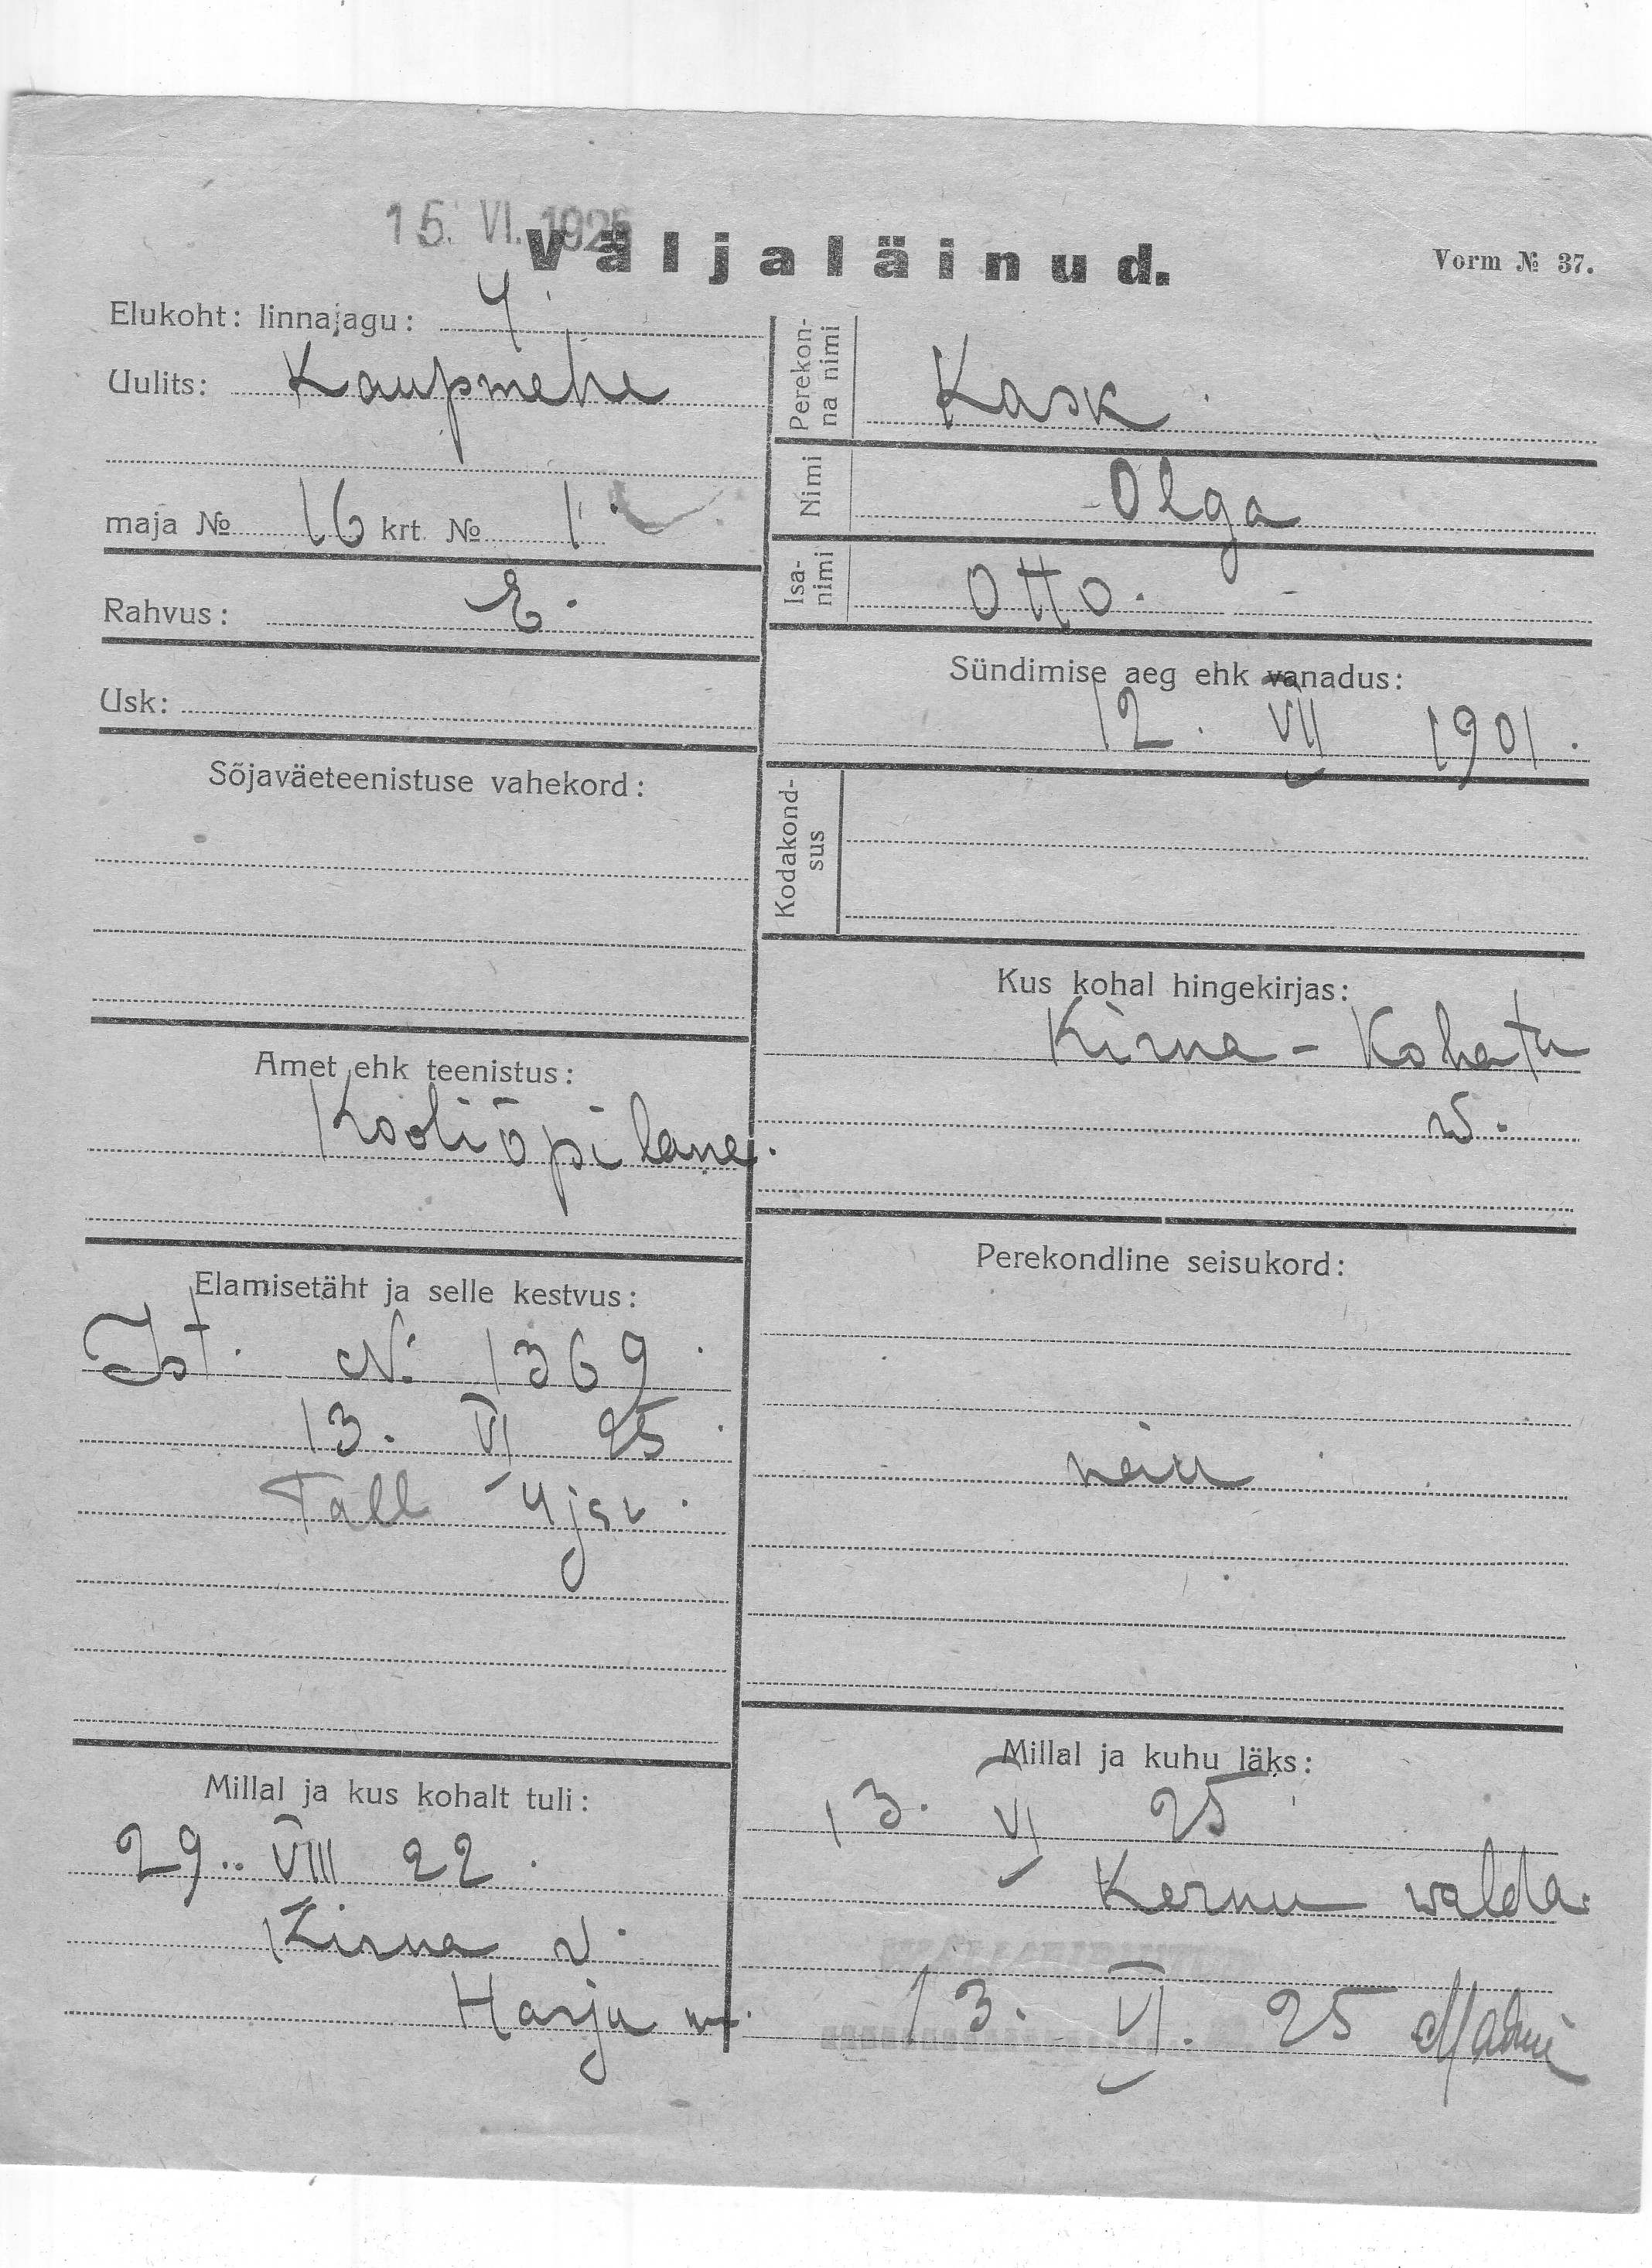 15. VI. 1925
Väljaläinud.
Vorm № 37.
Elukoht: linnajagu: 4
Uulits: Kaupmehe
maja № 16 krt. № 1
Rahvus: E.
Usk:
Sõjaväeteenistuse vahekord:
Amet ehk teenistus:
Kooliõpilane.
Elamisetäht ja selle kestvus:
Ist. N: 1369.
13. VI 25.
Tall 4 jsk.
Millal ja kus kohalt tuli:
29. VIII 22.
Kirna v.
Harju m.
Perekon-
na nimi
Kask.
Nimi
Olga
Isa-
nimi
Otto.
Sündimise aeg ehk vanadus:
12. VII 1901.
Kodakond-
sus
Kus kohal hingekirjas:
Kirna - Kohatu
w.
Perekondline seisukord:
neiu
Millal ja kuhu läks:
13. VI 25
Kernu walda.
13. VI. 25